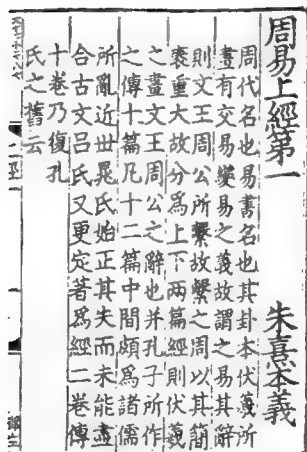 周易上經第一
朱熹本義
周代名也易書名也其卦本伏羲所
畫有交易變易之義故謂之易其辭
則文王周公所繫故繫之周以其簡
袠重大故分爲上下兩篇經則伏羲
之畫文王周公之辭也并孔子所作
之傳十篇凡十二篇中間頗爲諸儒
所亂近世晁氏始正其失而未能盡
合古文呂氏又更定著爲經二卷傳
十卷乃復孔
氏之舊云